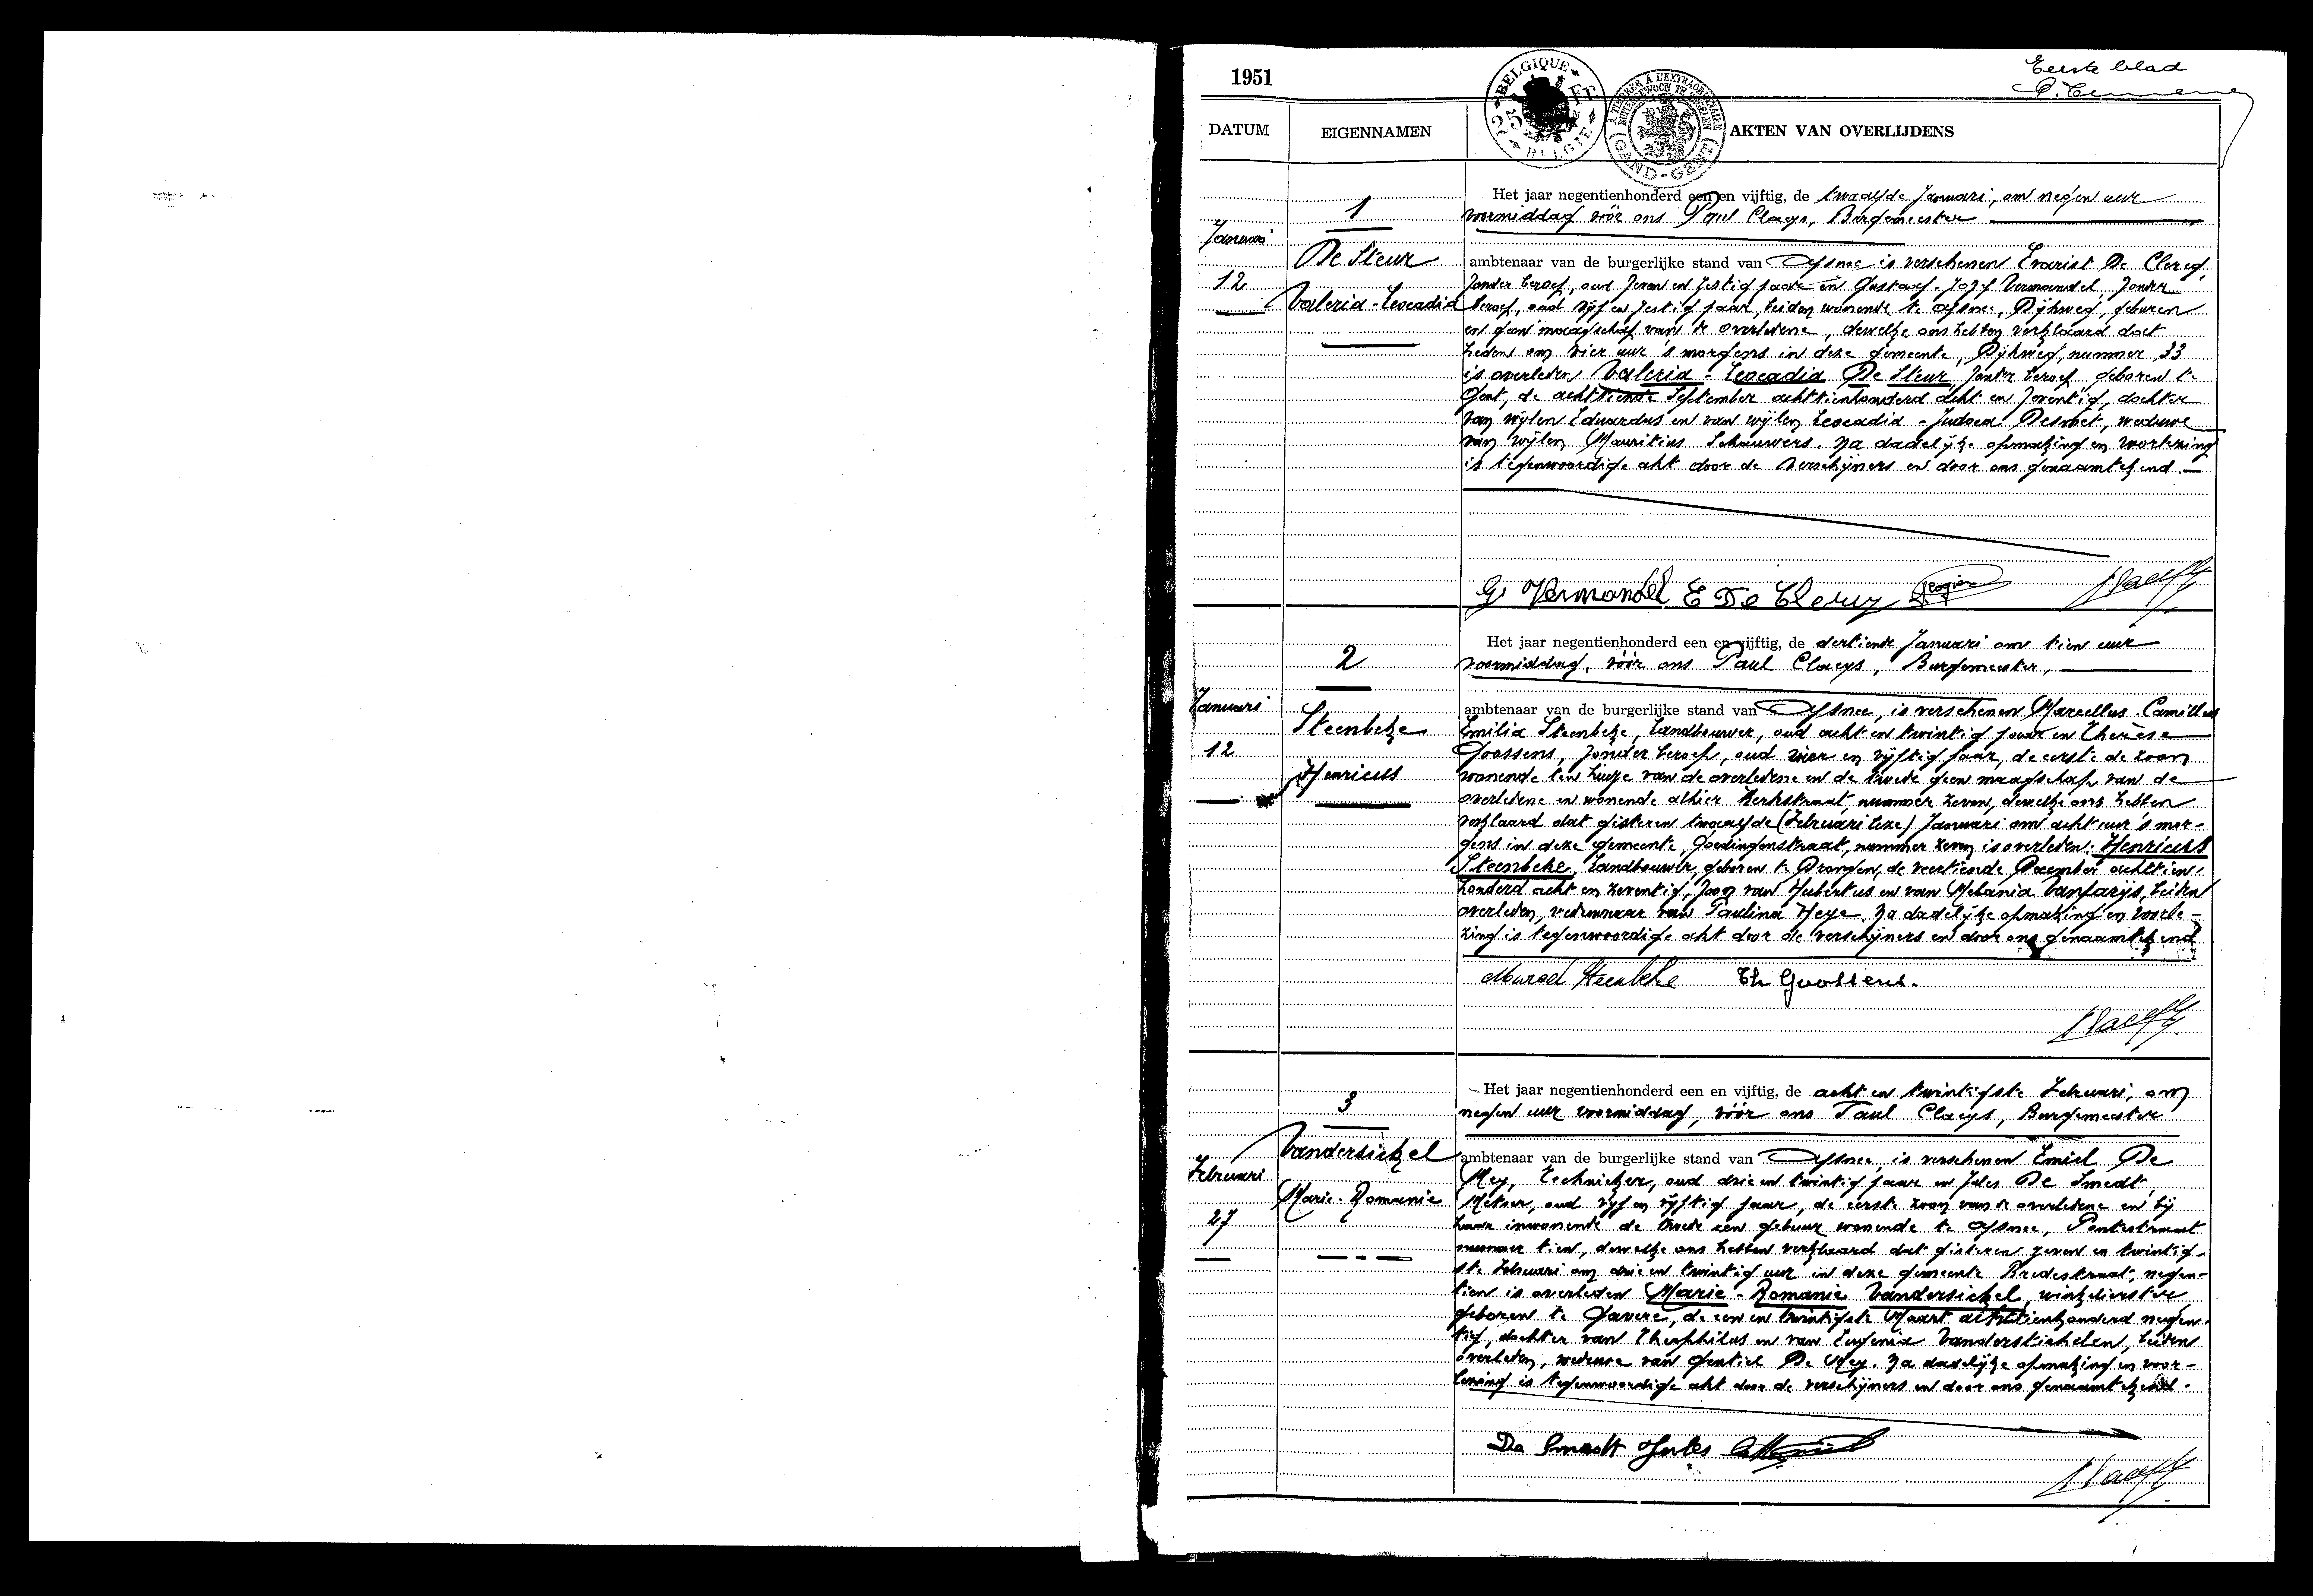 1951
Eerste blad
BELGIQUE 25 Fr BELGIE
A TIMBRER À L'EXTRAORDINAIRE BUITENGEWOON TE ZEGELEN GAND-GENT
DATUM
EIGENNAMEN
AKTEN VAN OVERLIJDENS
Januari
12
1
De Sleur
Valeria-Leocadia
Het jaar negentienhonderd een en vijftig, de twaalfde Januari, om negen uur
voormiddag vóór ons Paul Claeys, Burgemeester
ambtenaar van de burgerlijke stand van Afsnee is verschenen Evarist De Clercq,
zonder beroep, oud zeven en zestig jaar en Gustaaf-Jozef Vermandel, zonder
beroep, oud vijf en zestig jaar, beiden wonende te Afsnee, Dijkweg, geburen
en geen maagschap van de overledene, dewelke ons hebben verklaard dat
heden om vier uur 's morgens in deze gemeente, Dijkweg, nummer 33
is overleden Valeria-Leocadia De Sleur, zonder beroep geboren te
Gent, de achttiende September achttienhonderd acht en zeventig, dochter
van wijlen Eduardus en van wijlen Leocadia-Judoca Desmet, weduwe
van wijlen Mauritius Schauwers. Na dadelijke opmaking en voorlezing
is tegenwoordige akt door de verschijners en door ons genaamtekend.
G. Vermandel E De Clercq
Januari
12
2
Steenbeke
Henricus
Het jaar negentienhonderd een en vijftig, de dertiende Januari om tien uur
voormiddag, vóór ons Paul Claeys, Burgemeester,
ambtenaar van de burgerlijke stand van Afsnee, is verschenen Marcellus-Camillus
Emilia Steenbeke, Landbouwer, oud acht en twintig jaar en Therèse
Goossens, zonder beroep, oud vier en vijftig jaar, de eerste de zoon
wonende ten huize van de overledene en de tweede geen maagschap van de
overledene en wonende alhier Kerkstraat, nummer zeven, dewelke ons hebben
verklaard dat gisteren twaalfde (Februari lees) Januari om acht uur 's mor-
gens in deze gemeente, Goedingenstraat, nummer zeven is overleden: Henricus
Steenbeke, Landbouwer, geboren te Drongen, de veertiende December achttien-
honderd acht en zeventig, zoon van Hubertus en van Melania Vanparijs, beiden
overleden, weduwnaar van Paulina Heye. Na dadelijke opmaking en voorle-
zing is tegenwoordige akt door de verschijners en door ons genaamtekend
Marcel Steenbeke Th Goossens.
Februari
27
3
Vandersickel
Marie-Romanie
Het jaar negentienhonderd een en vijftig, de acht en twintigste Februari, om
negen uur voormiddag, vóór ons Paul Claeys, Burgemeester
ambtenaar van de burgerlijke stand van Afsnee, is verschenen Emiel De
Mey, Technieker, oud drie en twintig jaar en Jules De Smedt,
Metser, oud vijf en vijftig jaar, de eerste zoon van de overledene en bij
haar inwonende de tweede een gebuur wonende te Afsnee, Pontstraat
nummer tien, dewelke ons hebben verklaard dat gisteren zeven en twintig-
ste Februari om drie en twintig uur in deze gemeente Bredestraat, negen-
tien is overleden Marie-Romanie Vandersickel, winkelierster,
geboren te Gavere, de een en twintigste Maart achttienhonderd negen-
tig, dochter van Theophilus en van Eugenia Vanderstichelen, beiden
overleden, weduwe van Gentiel De Mey. Na dadelijke opmaking en voor-
lezing is tegenwoordige akt door de verschijners en door ons genaamtekend.
De Smedt Jules